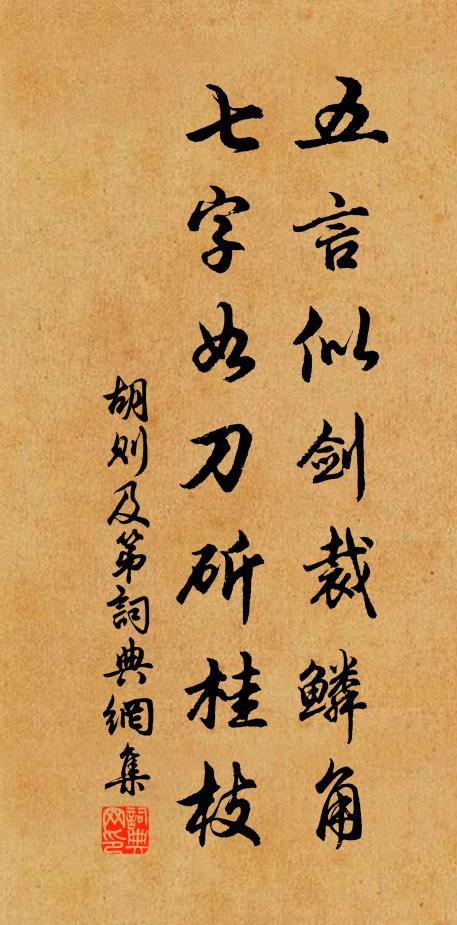 五言似剑裁鳞角
七字如刀斫桂枝
胡则及第詞典網集
詞典网印